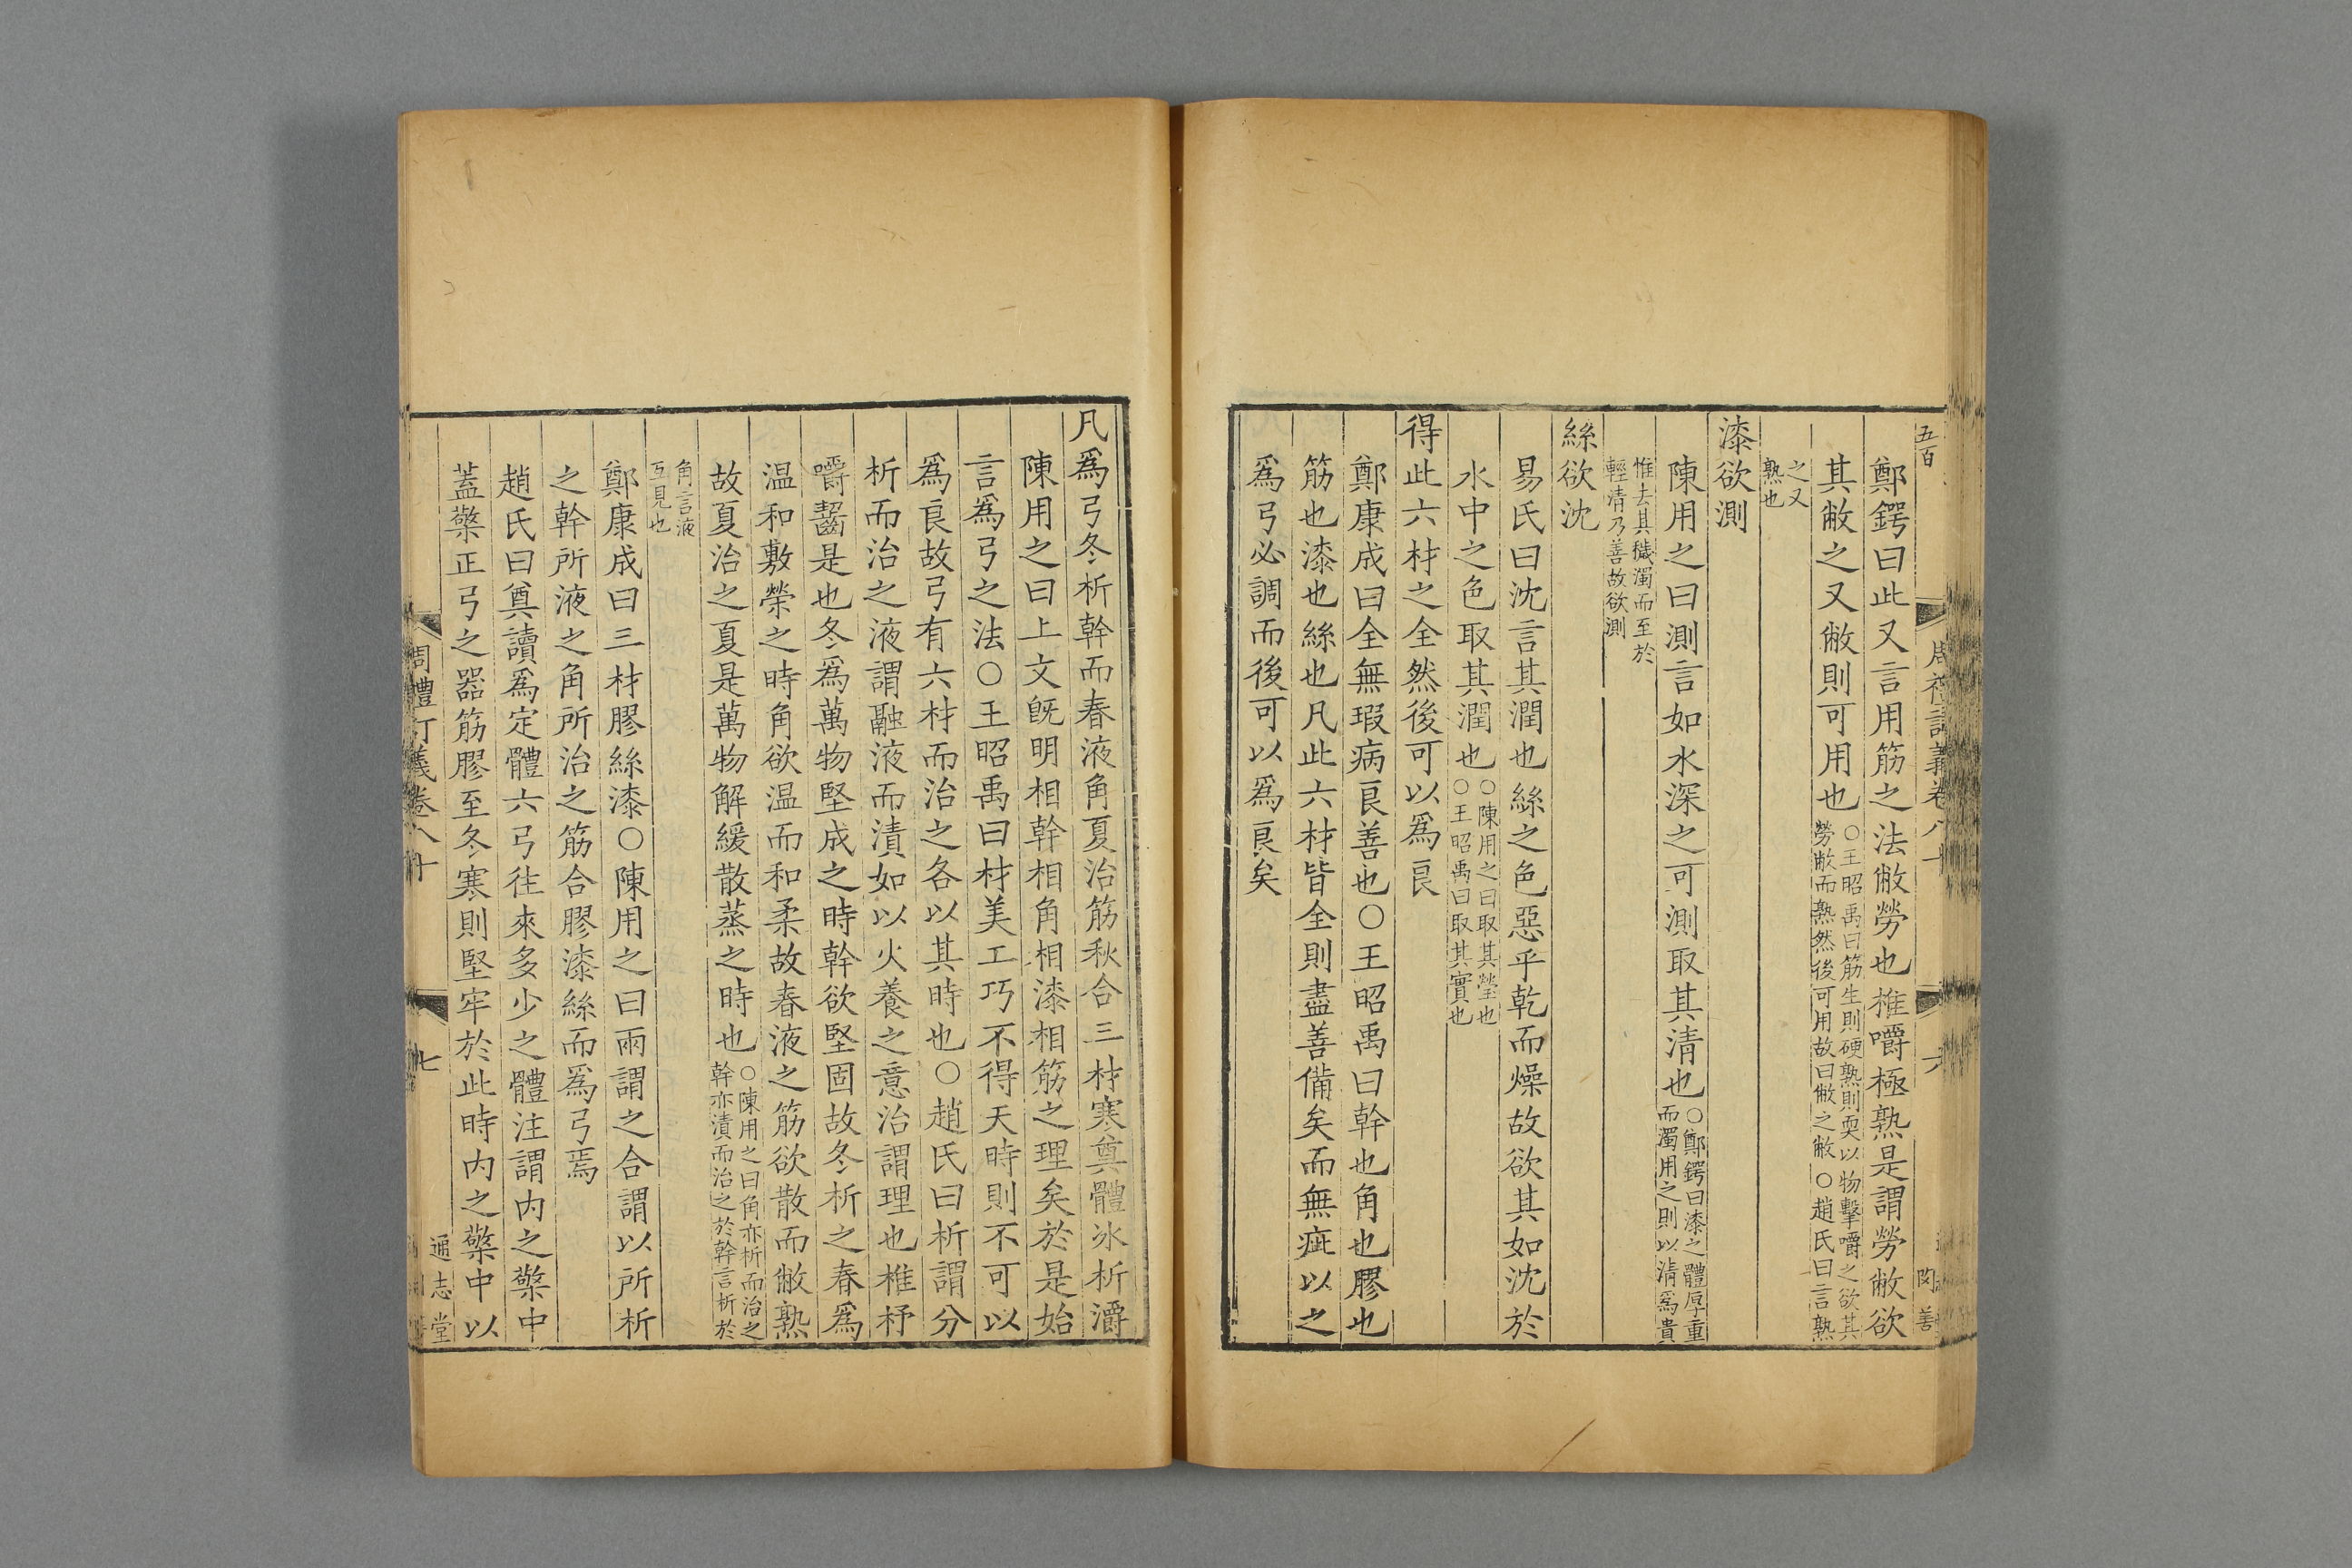 五百
周禮訂義卷八十
六
鄭鍔曰此又言用筋之法敝勞也椎嚼極熟是謂勞敝欲
其敝之又敝則可用也
○王昭禹曰筋生則硬熟則耎以物擊嚼之欲其
勞敝而熟然後可用故曰敝之敝○趙氏曰言熟
之又
熟也
漆欲測
陳用之曰測言如水深之可測取其清也
○鄭鍔曰漆之體厚重
而濁用之則以清爲貴
惟去其穢濁而至於
輕清乃善故欲測
絲欲沈
易氏曰沈言其潤也絲之色惡乎乾而燥故欲其如沈於
水中之色取其潤也
○陳用之曰取其瑩也
○王昭禹曰取其實也
得此六材之全然後可以爲良
鄭康成曰全無瑕病良善也○王昭禹曰幹也角也膠也
筋也漆也絲也凡此六材皆全則盡善備矣而無疵以之
爲弓必調而後可以爲良矣
凡爲弓冬析幹而春液角夏治筋秋合三材寒奠體冰析灂
陳用之曰上文旣明相幹相角相漆相筋之理矣於是始
言爲弓之法○王昭禹曰材美工巧不得天時則不可以
爲良故弓有六材而治之各以其時也○趙氏曰析謂分
析而治之液謂融液而漬如以火養之意治謂理也椎杼
嚼齧是也冬爲萬物堅成之時幹欲堅固故冬析之春爲
温和敷榮之時角欲温而和柔故春液之筋欲散而敝熟
故夏治之夏是萬物解緩散蒸之時也
○陳用之曰角亦析而治之
幹亦漬而治之於幹言析於
角言液
互見也
鄭康成曰三材膠絲漆○陳用之曰兩謂之合謂以所析
之幹所液之角所治之筋合膠漆絲而爲弓焉
趙氏曰奠讀爲定體六弓往來多少之體注謂内之檠中
蓋檠正弓之器筋膠至冬寒則堅牢於此時内之檠中以
周禮訂義卷八十
七
通志堂